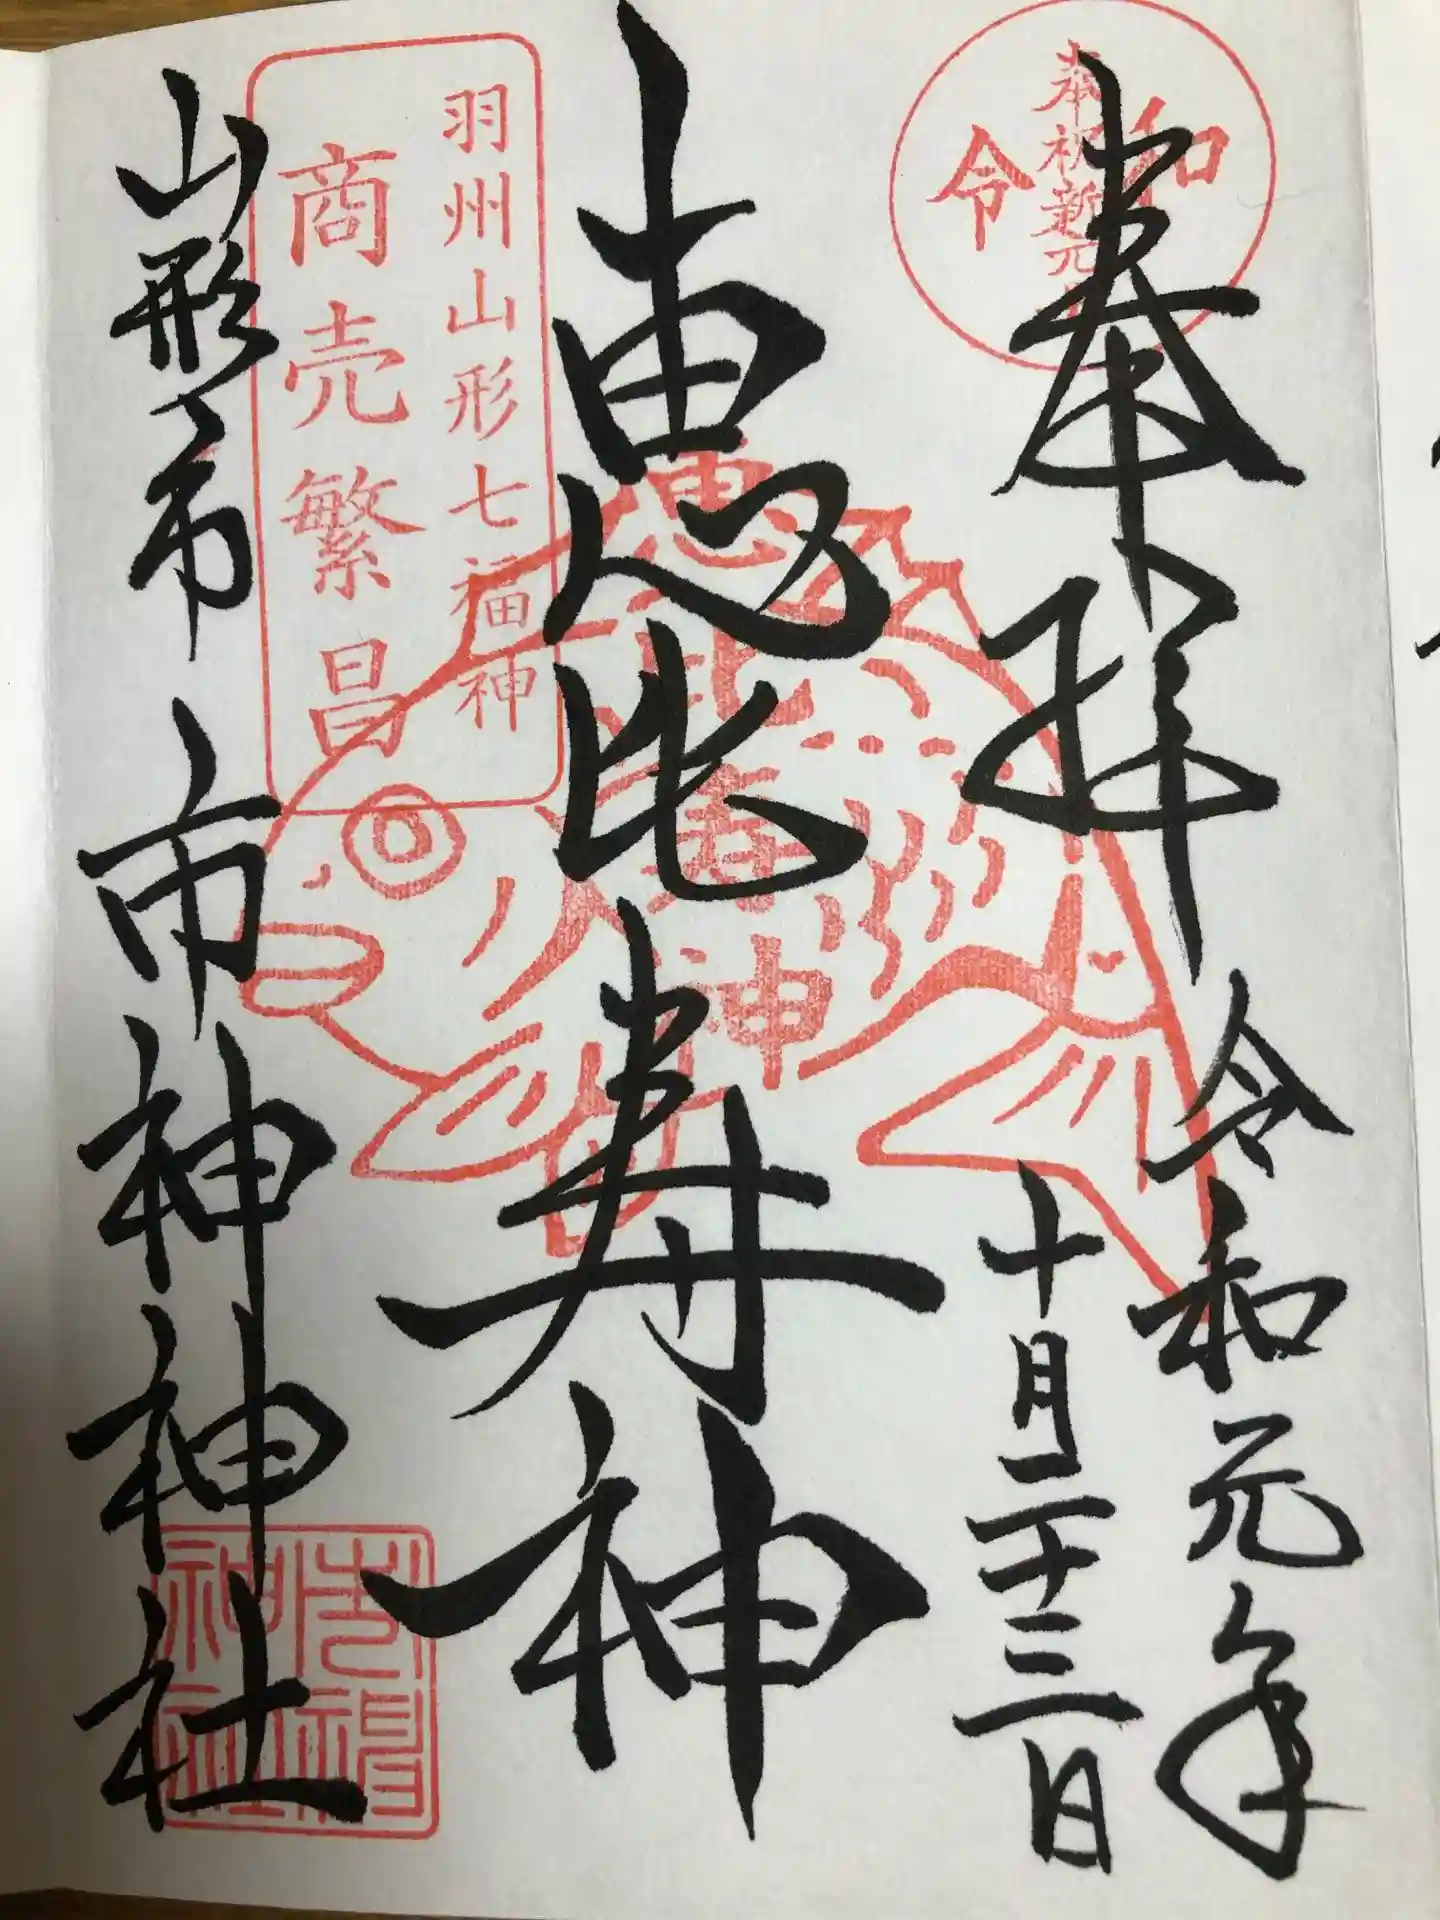 奉拝
令和元年
十月二十三日
恵比寿神
山形市 市神神社
奉祝新元号
令和
羽州山形七福神
商売繁昌
恵比寿神
市神神社